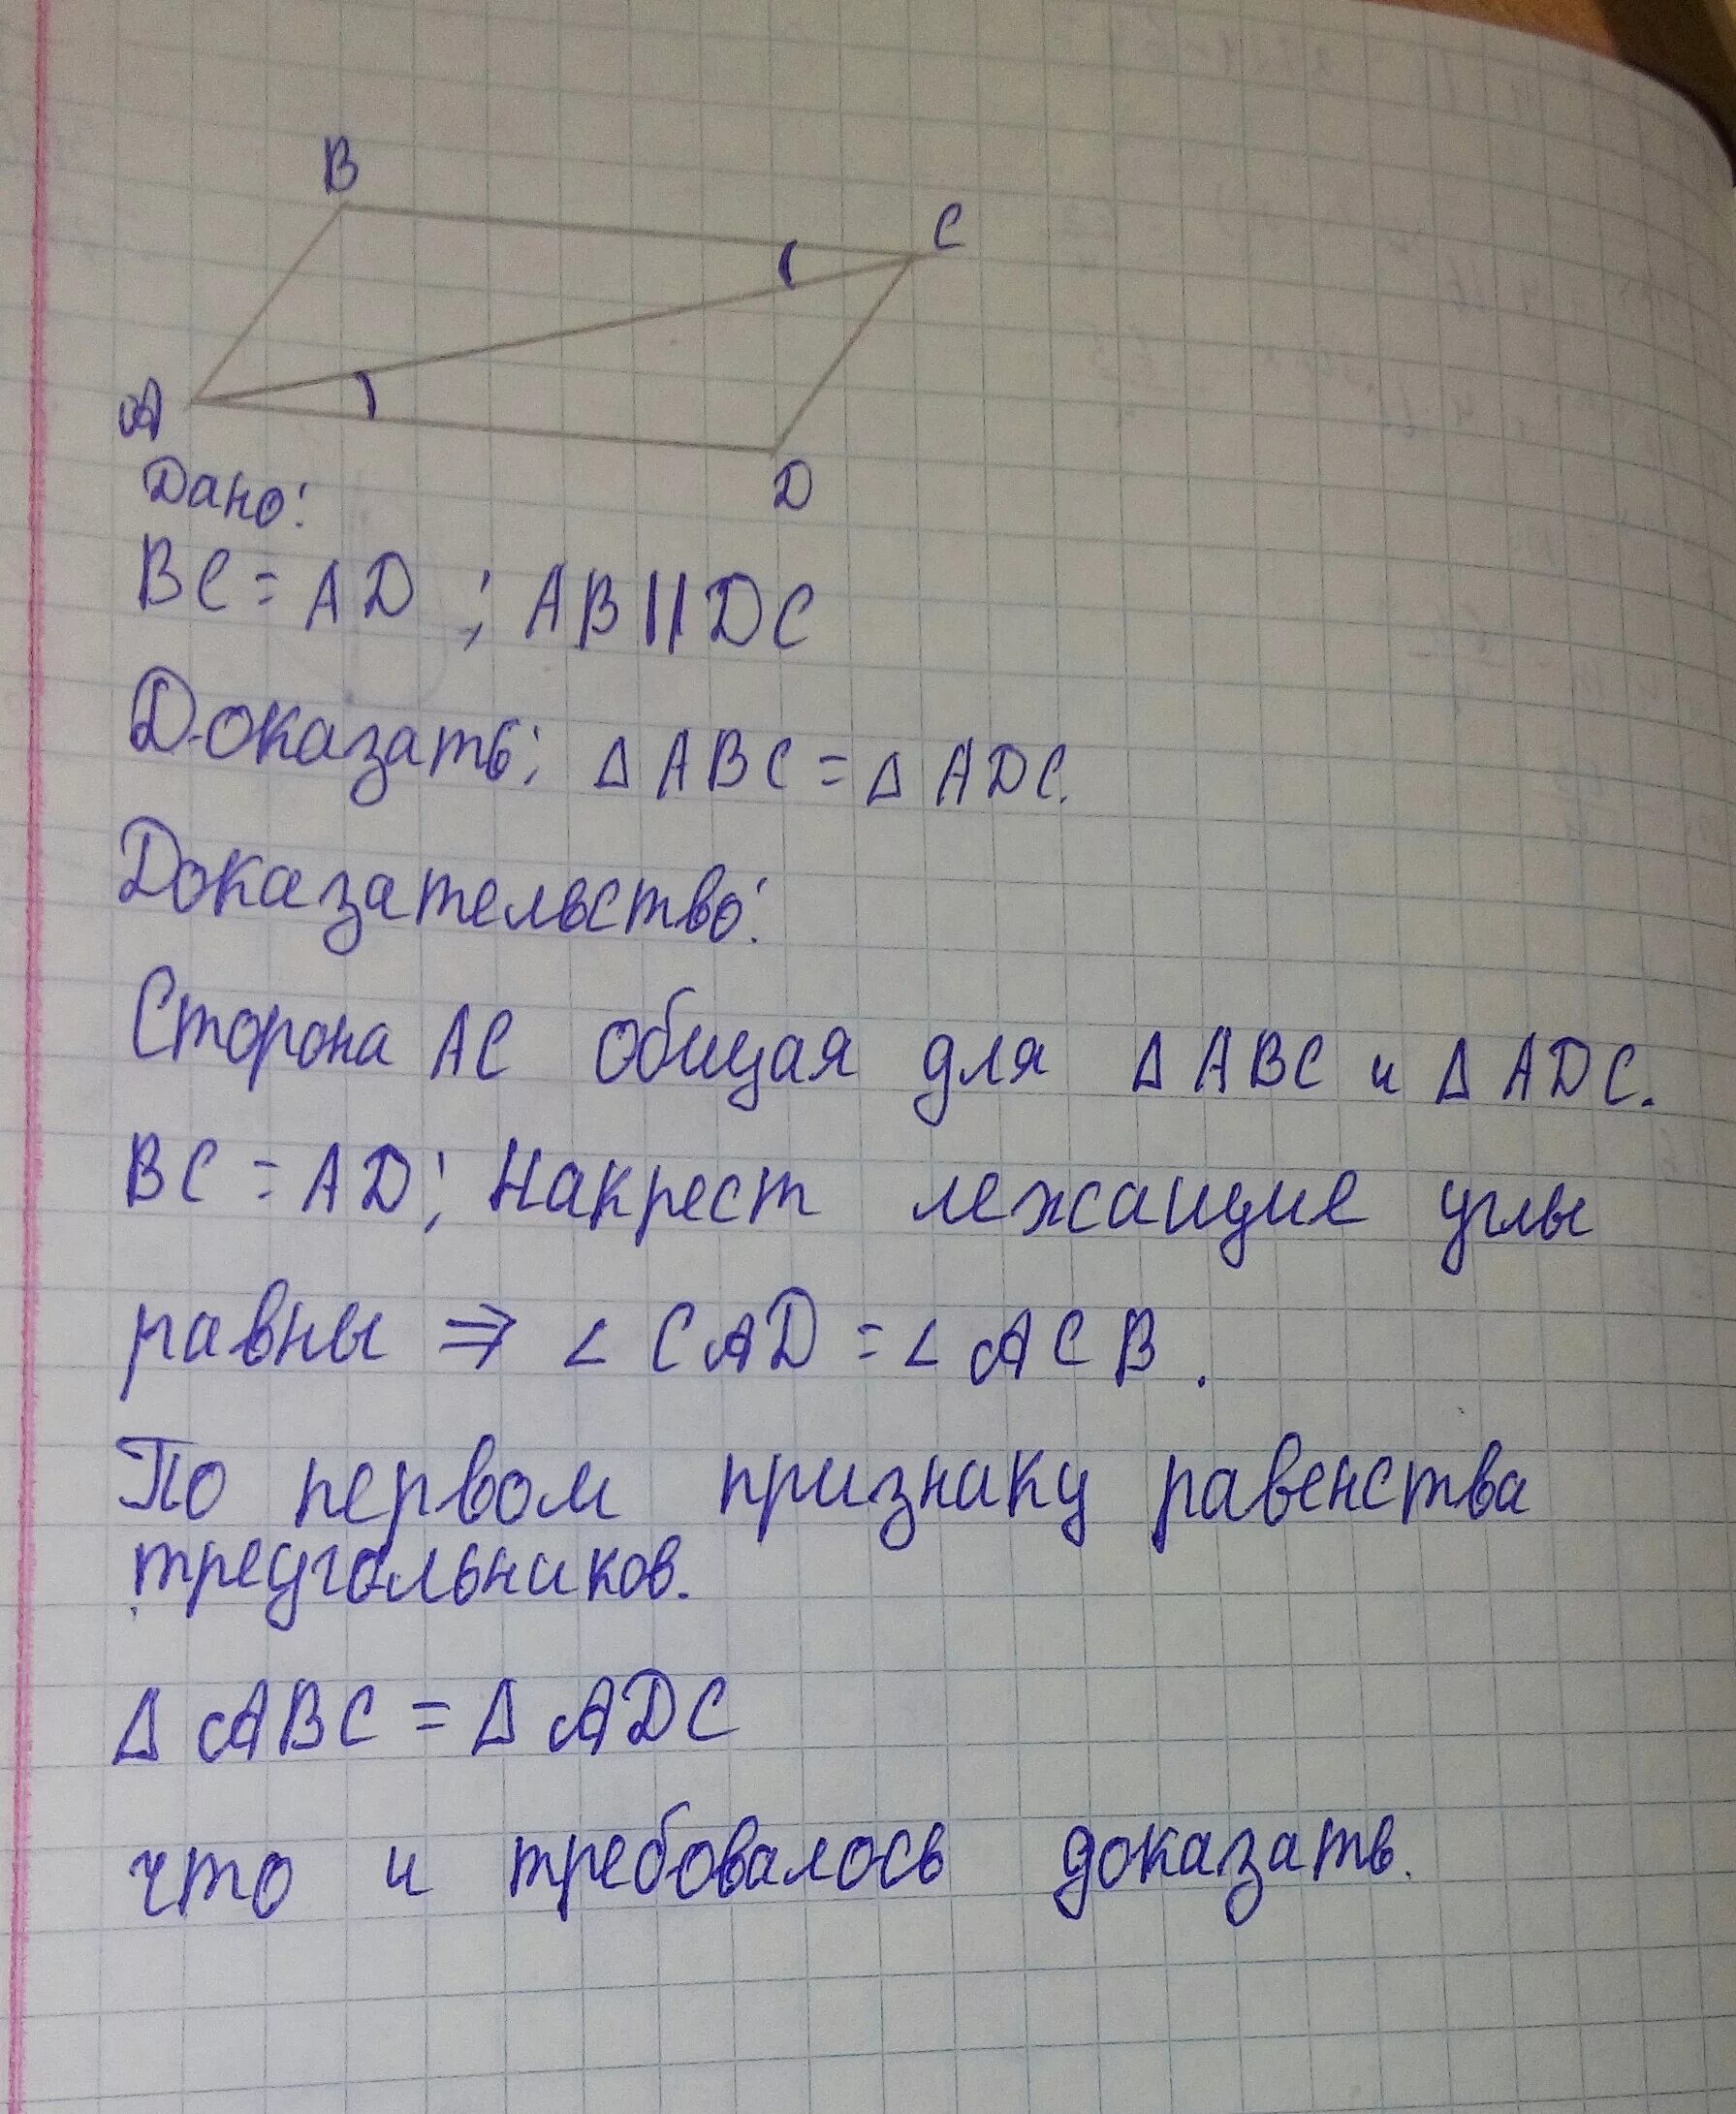 B
C
A
D
Дано:
BC = AD ; AB || DC
Доказать: Δ ABC = Δ ADC.
Доказательство:
Сторона AC общая для Δ ABC и Δ ADC.
BC = AD; Накрест лежащие углы
равны ⇒ ∠ CAD = ∠ ACB.
По первом признаку равенства
треугольников.
Δ ABC = Δ ADC
что и требовалось доказать.